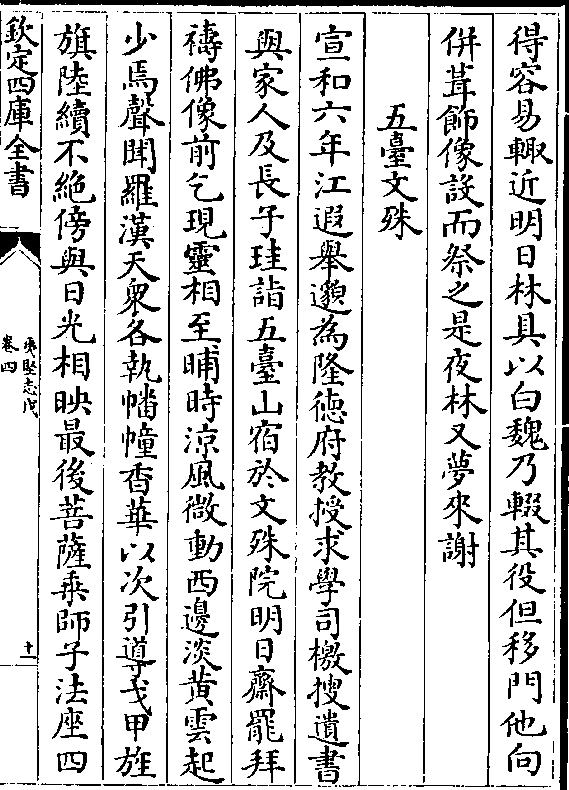 得容易輙近明日林具以白魏乃輟其役但移門他向
併葺飾像設而祭之是夜林又夢來謝
五臺文殊
宣和六年江遐舉邈為隆徳府教授求學司檄搜遺書
與家人及長子珪詣五臺山宿於文殊院明日齋罷拜
禱佛像前乞現靈相至晡時涼風微動西邊淡黄雲起
少焉聲聞羅漢天衆各執幡幢香華以次引導戈甲旌
旗陸續不絶傍與日光相映最後菩薩乗師子法座四
欽定四庫全書
夷堅志戊
卷四
十一